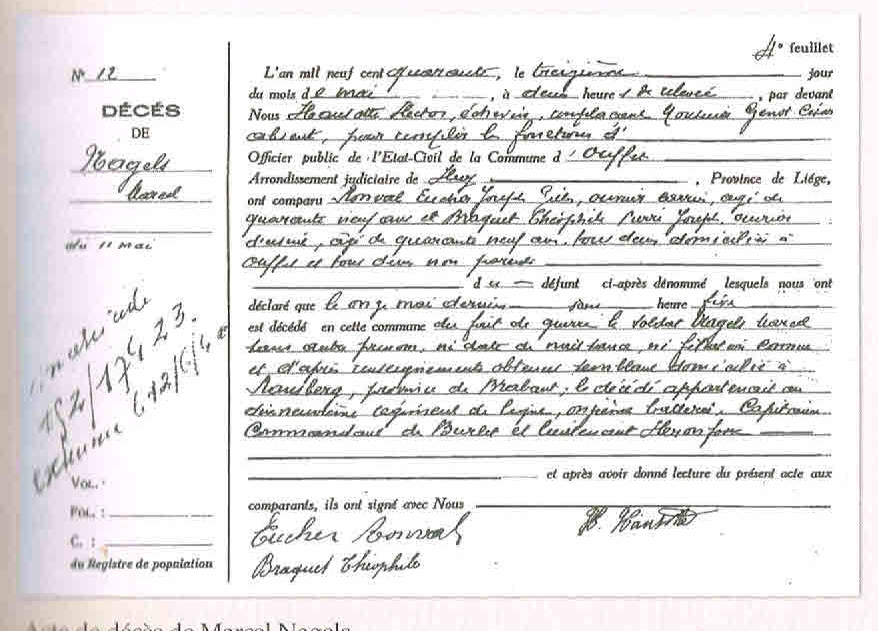 4e feuillet
N° 12
DÉCÉS
DE
Nagels
Marcel
du 11 mai
152/17423.
exhumé le 12/6/40
VOL. :
FOL. :
C. :
du Registre de population
L'an mil neuf cent quarante, le treizième jour
du mois de mai, à deux heures de relevée, par devant
Nous Hansotte Hector, échevin, remplaçant Monsieur Genot
absent, pour remplir les fonctions d'
Officier public de l'Etat-Civil de la Commune d'Ouffet
Arrondissement judiciaire de Huy, Province de Liége,
ont comparu Ronval Eucher Joseph, ouvrier, agé de
quarante neuf ans et Braquet Théophile Pierre Joseph, ouvrier
d'usine, âgé de quarante neuf ans, tous deux domiciliés à
Ouffet et tous deux non parents
du défunt ci-après dénommé lesquels nous ont
déclaré que le onze mai dernier sans heure fixe
est décédé en cette commune du fait de guerre le soldat Nagels Marcel
sans autre prénom, ni date de naissance, ni filiation connue
et d'après renseignements obtenus semblant domicilié à
province de Brabant; le décédé appartenait au
dixneuvième régiment de ligne, onzième batterie, Capitaine
Commandant de Burlet et lieutenant
et après avoir donné lecture du présent acte aux
comparants, ils ont signé avec Nous
Eucher Ronval
H. Hansotte
Braquet Théophile
Acte de décès de Marcel Nagels